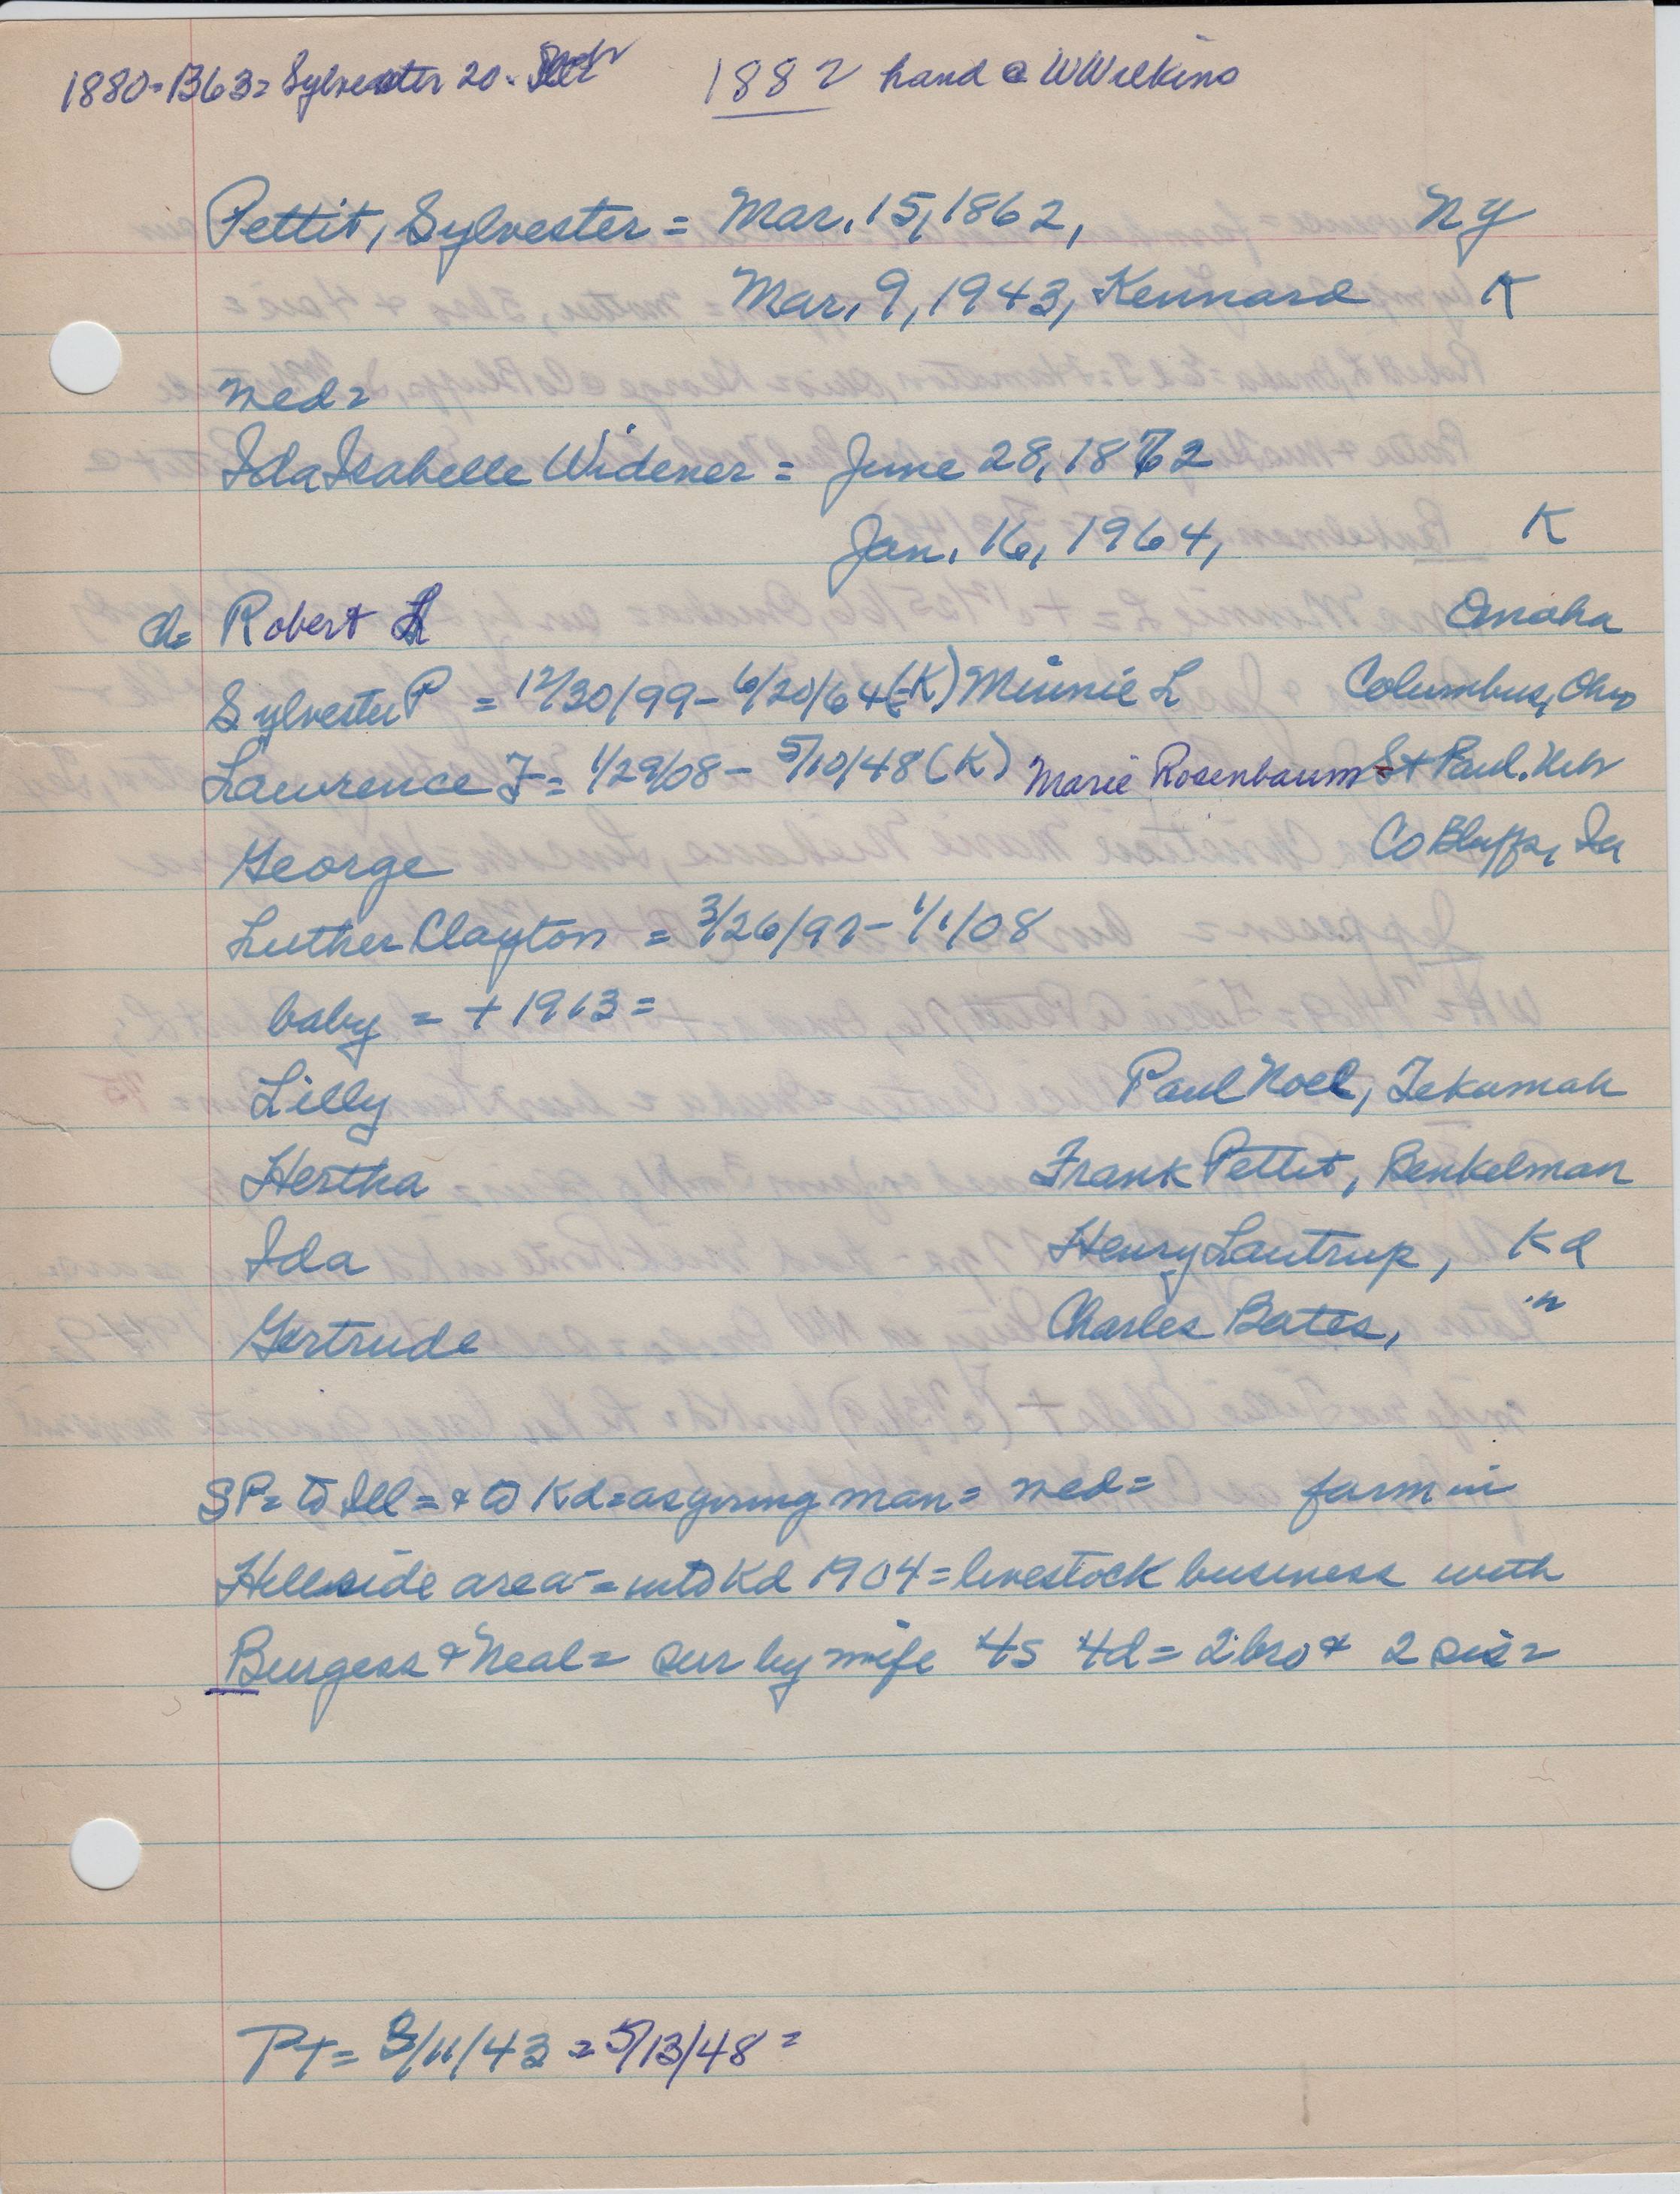 1880=1363= Sylvester 20. 1882 hand @ WWilkins
Pettit, Sylvester = Mar. 15, 1862, NY
Mar. 9, 1943, Kennard K
med=
Ida Isabelle Widener = June 28, 1872
Jan. 16, 1964, K
ch= Robert L Omaha
Sylvester P = 12/30/99 - 6/20/64 (K) Minnie L Columbus, Ohio
Lawrence F = 1/29/08 - 5/10/48 (K) Marie Rosenbaum St Paul. Neb
George Co Bluffs, Ia
Luther Clayton = 3/26/97 - 1/1/08
baby = + 1913 =
Lilly Paul Noel, Tekamah
Hertha Frank Pettit, Benkelman
Ida Henry Lautrup, Kd
Gertrude Charles Bates, "
SP= to Ill = & to Kd = as young man = med = farm in
Hillside area = into Kd 1904 = livestock business with
Burgess & Neal = sur by wife 4s 4d = 2 bro & 2 sis =
PT= 3/11/43 = 5/13/48 =